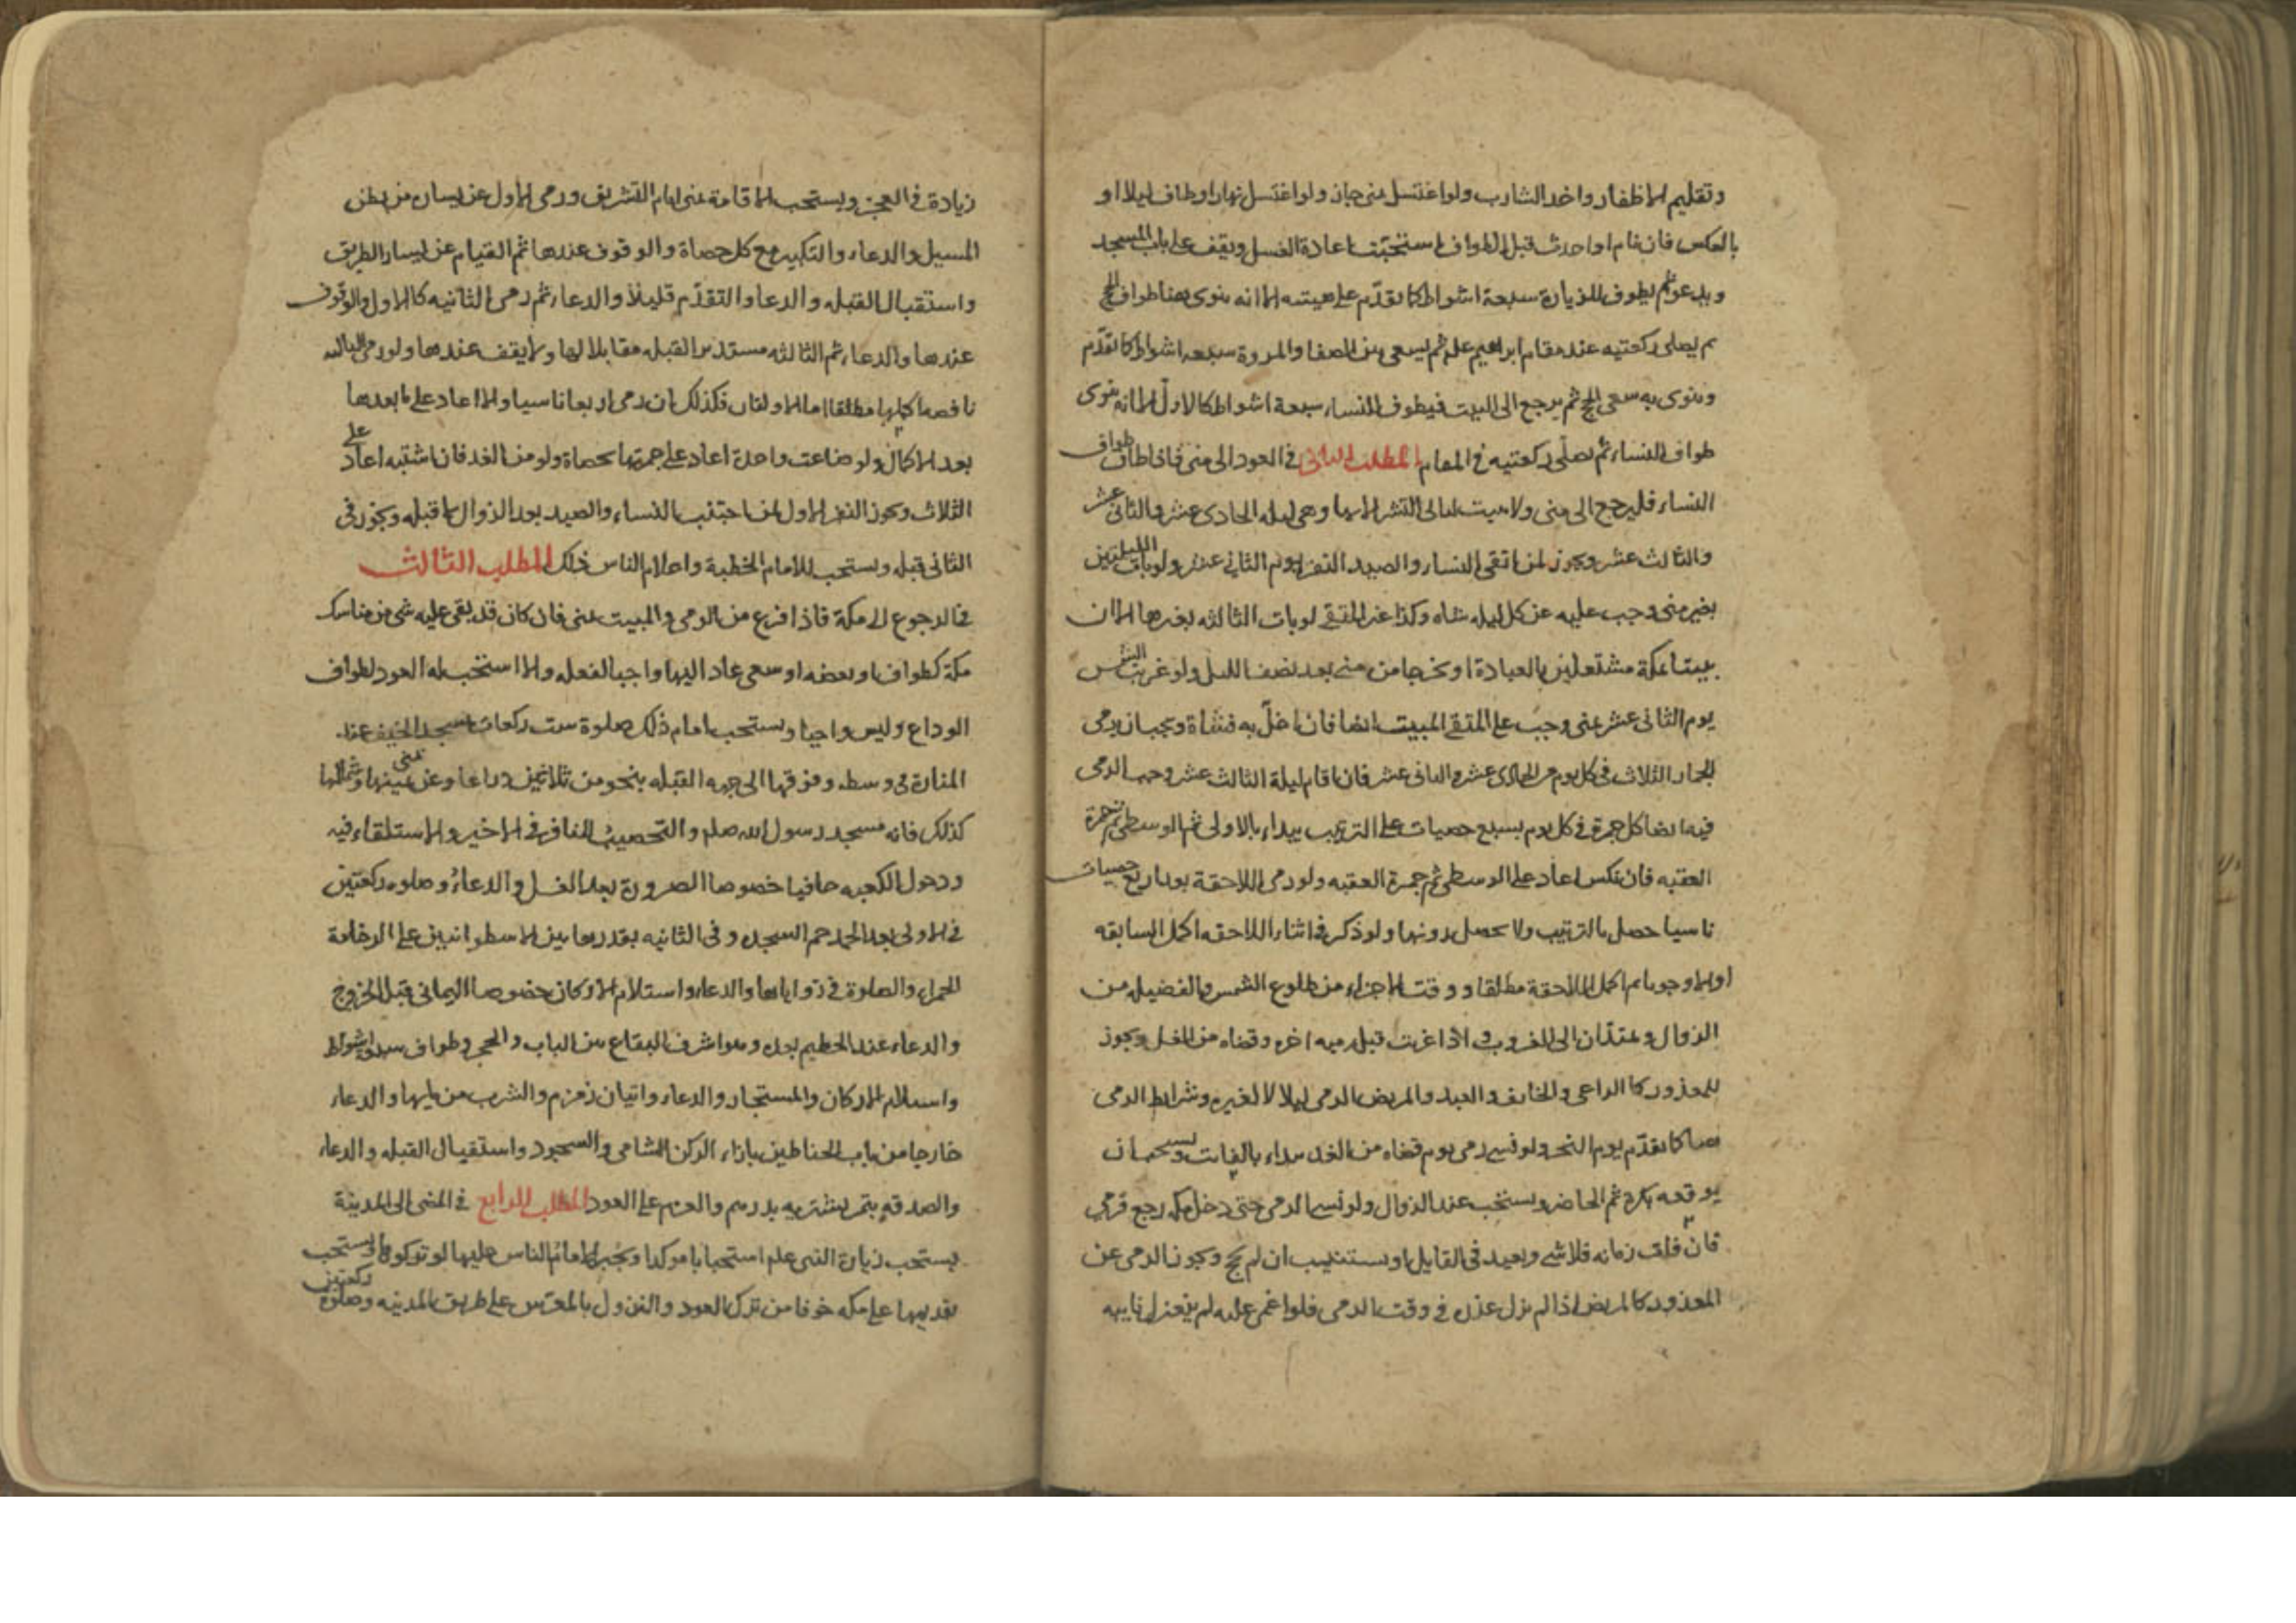 وتقليم الاظفار واخد الشارب ولو اغتسل بمنى جاز ولو اغتسل نهارا وطاف ليلا او
بالعكس فان نام او احدث قبل الطواف استحبت اعادة الغسل ويقف على باب المسجد
ويدعو ثم يطوف للزيارة سبعة اشواط كما تقدّم على هيئته الا انه ينوى بهذا طواف الحج
ثم يصلى ركعتيه عند مقام ابراهيم علم ثم يسعى بين الصفا والمروة سبعه اشواط كما تقدّم
وينوى به سعى الحج ثم يرجع الى البيت فيطوف للنساء سبعة اشواط كالاول الا انه ينوى
طواف النساء ثم يصلى ركعتيه فى المقام المطلب الثانى فى العود الى منى فاذا طاف طواف
النساء فليرجع الى منى ولا يبيت ليالى التشريق الا بها وهى ليله الحادى عشر والثانى عشر
والثالث عشر ويجوز لمن اتقى النساء والصيد النفر يوم الثانى عشر ولو بات الليلتين
بغير منى وجب عليه عن كل ليله شاه وكذا غير المتقى لو بات الثالثه بغيرها الا ان
يبيتا بمكة مشتغلين بالعبادة او يخرجا من منى بعد نصف الليل ولو غربت الشمس
يوم الثانى عشر بمنى وجب على المتقى المبيت ايضا فان اخلّ به فشاة ويجب ان يرمى
الجمار الثلاث فى كل يوم من الحادى عشر والثانى عشر فان اقام ليلة الثالث عشر وجب الرمى
فيه ايضا كل جمرة فى كل يوم بسبع حصيات على الترتيب يبداء بالاولى ثم الوسطى ثم جمرة
العقبه فان نكس اعاد على الوسطى ثم جمرة العقبه ولو رمى اللاحقة بعد اربع حصيات
ناسيا حصل بالترتيب ولا يحصل بدونها ولو ذكر فى اثناء اللاحقه اكمل السابقه
اولا وجوبا ثم اكمل اللاحقة مطلقا ووقت الاجزاء من طلوع الشمس والفضيله من
الزوال ويمتدّان الى الغروب فاذا غربت قبل رميه اخره وقضاه من الغد ويجوز
للمعذور كالراعى والخائف والعبد والمريض الرمى ليلا لا لغيره وشرائط الرمى
هنا كما تقدّم يوم النحر ولو نسى رمى يوم قضاه من الغد يبداء بالفايت ويستحب ان
يوقعه بكرة ثم الحاضر ويستحب عند الزوال ولو نسى الرمى حتى دخل مكه رجع فرمى
فان فات زمانه فلا شى ويعيد فى القابل او يستنيب ان لم يحج ويجوز الرمى عن
المعذور كالمريض اذا لم يزل عذره فى وقت الرمى فلو اغمى عليه لم ينعزل نايبه
زيادة فى العجز ويستحب الاقامة بمنى ايام التشريق ورمى الاول عن يساره من بطن
المسيل والدعاء والتكبير مع كل حصاة والوقوف عندها ثم القيام عن يسار الطريق
واستقبال القبله والدعا والتقدّم قليلا والدعاء ثم رمى الثانيه كالاول والوقوف
عندها والدعاء ثم الثالثه مستدبر القبله مقابلا لها ولا يقف عندها ولو رمى الثالثه
ناقصه اكملها مطلقا اما الاولتان فكذلك ان رمى اربعا ناسيا والا اعاد على ما بعدها
بعد الاكمال ولو ضاعت واحدة اعاد على جمرتها بحصاة ولو من الغد فان اشتبه اعاد على
الثلاث ويجوز النفر الاول لمن اجتنب النساء والصيد بعد الزوال لا قبله ويجوز فى
الثانى قبله ويستحب للامام الخطبة واعلام الناس ذلك المطلب الثالث
فى الرجوع الى مكة فاذا فرغ من الرمى والمبيت بمنى فان كان قد بقى عليه شى من مناسك
مكة كطواف او بعضه او سعى عاد اليها واجبا لفعله والا استحب له العود لطواف
الوداع وليس واجبا ويستحب امام ذلك صلوة ست ركعات بمسجد الخيف عند
المنارة فى وسطه وفوقها الى جهه القبله بنحو من ثلاثين ذراعا وعن يمينها وشمالها بمنى
كذلك فانه مسجد رسول الله صلم والتحصيب للنافر فى الاخير والاستلقاء فيه
ودخول الكعبه حافيا خصوصا الصرورة بعد الغسل والدعاء وصلوه ركعتين
فى الاولى بعد الحمد حم السجده وفى الثانيه بقدرها بين الاسطوانتين على الرخامة
الحمراء والصلوة فى زواياها والدعاء واستلام الاركان خصوصا اليمانى قبل الخروج
والدعاء عند الحطيم بعده وهو اشرف البقاع بين الباب والحجر وطواف سبعة اشواط
واستلام الاركان والمستجار والدعاء واتيان زمزم والشرب من مايها والدعاء
خارجا من باب الحناطين بازاء الركن الشامى والسجود واستقبال القبله والدعاء
والصدقه بتمر يشتريه بدرهم والعزم على العود المطلب الرابع فى المضى الى المدينة
يستحب زيارة النبى علم استحبابا موكدا ويجبر الامام الناس عليها لو تركوها ويستحب
تقديمها على مكه خوفا من ترك العود والنزول بالمعرّس على طريق المدينه وصلوة ركعتين